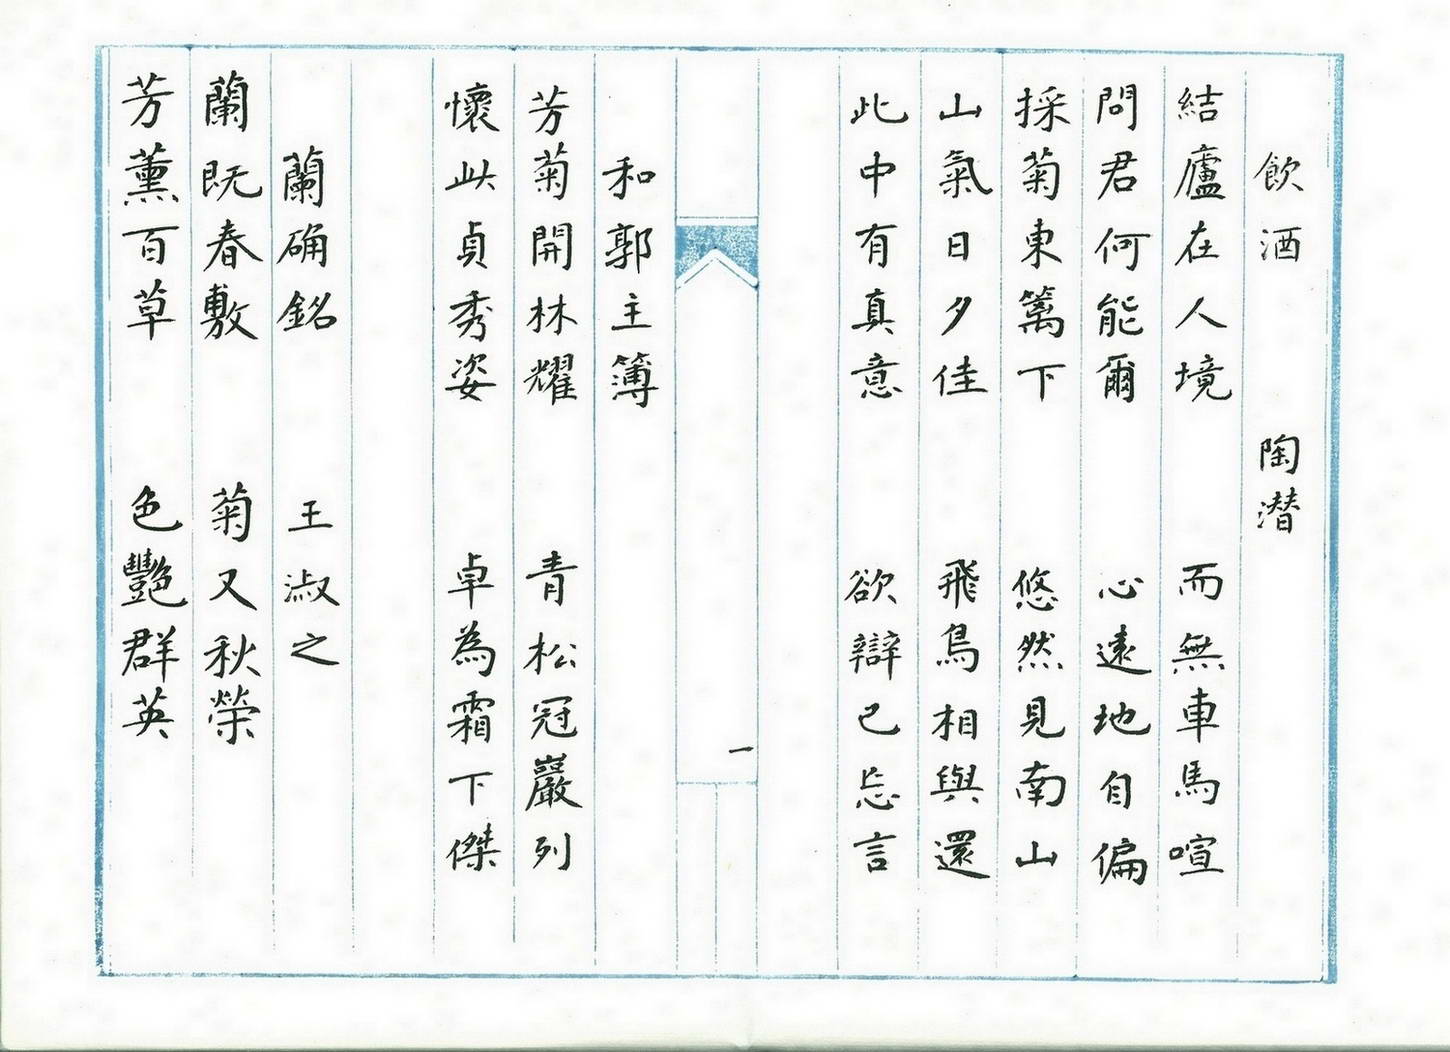 飲酒 陶潜
結廬在人境 而無車馬喧
問君何能爾 心遠地自偏
採菊東篱下 悠然見南山
山氣日夕佳 飛鳥相與還
此中有真意 欲辯已忘言
一
和郭主簿
芳菊開林耀 青松冠巖列
懷此貞秀姿 卓為霜下傑
蘭确銘 王淑之
蘭既春敷 菊又秋榮
芳薰百草 色艷群英